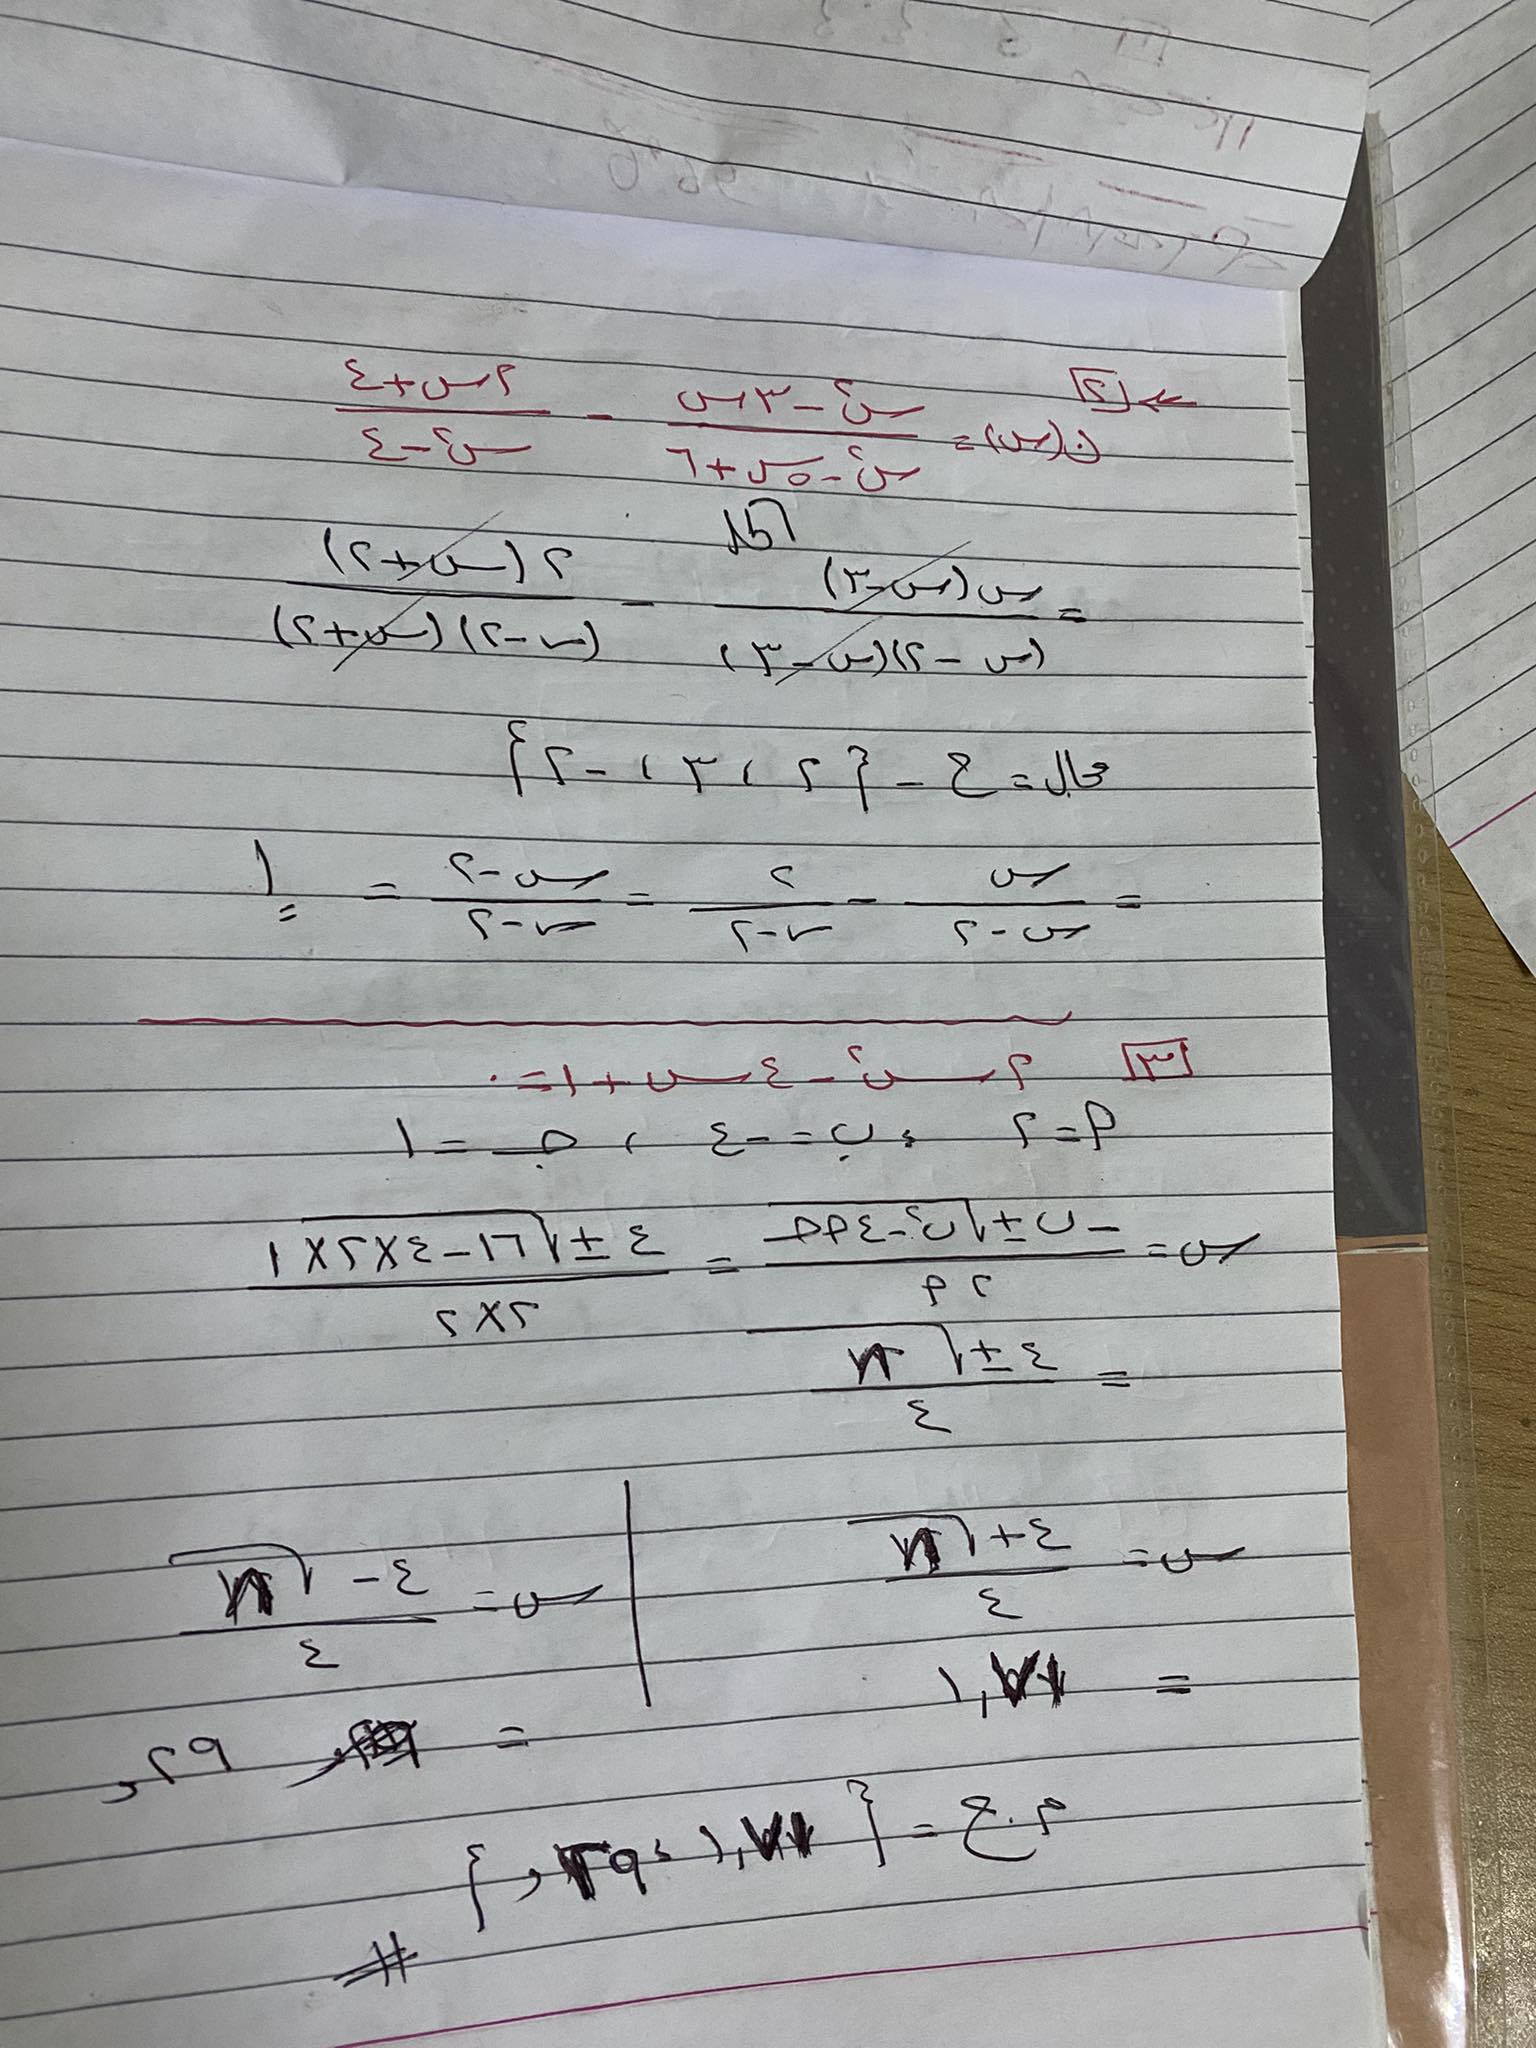 [٢]
ن(س) = (س٢ - ٣س)/(س٢ - ٥س + ٦) - (٢س + ٤)/(س٢ - ٤)
الحل
= س(س-٣)/(س-٢)(س-٣) - ٢(س+٢)/(س-٢)(س+٢)
مجال = ح - {٢ ، ٣ ، -٢}
= س/(س-٢) - ٢/(س-٢) = (س-٢)/(س-٢) = ١
[٣] ٢س٢ - ٤س + ١ = ٠
٢ = م ، ب = -٤ ، جـ = ١
س = (-ب ± √(ب٢ - ٤م جـ))/٢م = (٤ ± √(١٦ - ٤×٢×١))/٢×٢
= (٤ ± √٨)/٤
س = (٤ + √٨)/٤ | س = (٤ - √٨)/٤
= ١,٧١ = ٢٩,
م.ح = {١,٧١ ، ٢٩,}